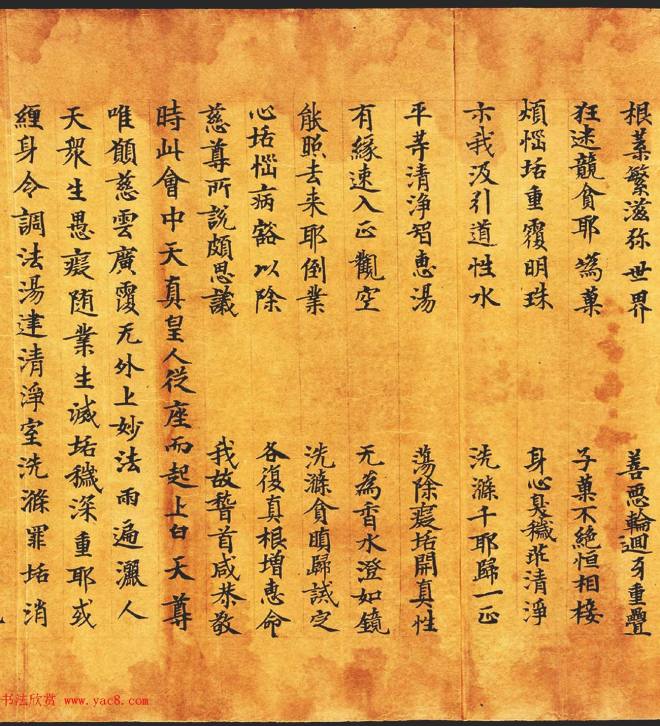 根葉繁滋弥世界 善惡輪迴身重疊
狂迷競貪耶為菓 子菓不絕恒相接
煩惱垢重覆明珠 身心臭穢乖清淨
示我汲引道性水 洗滌千耶歸一正
平等清淨智惠湯 蕩除癡垢開真性
有緣速入正觀空 无為香水澄如鏡
能照去來耶倒業 洗滌貪瞋歸誡定
心垢惱病豁以除 各復真根增惠命
慈尊所說頗思議 我故稽首咸恭敬
時此會中天真皇人從座而起上白天尊
唯願慈雲廣覆无外上妙法雨遍灑人
天衆生愚癡随業生滅垢穢深重耶或
纏身令調法湯建清淨室洗滌罪垢消
书法欣赏 www.yac8.com